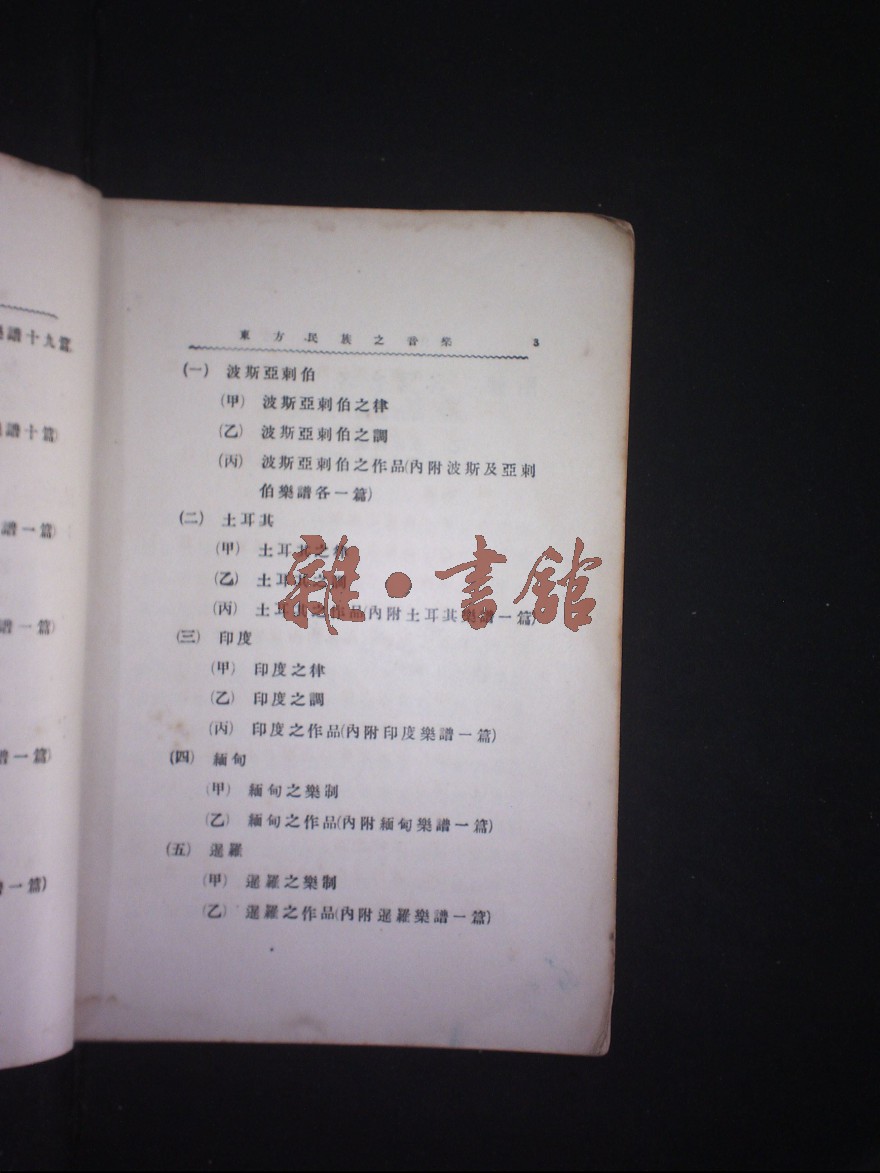 譜十九篇
譜十篇)
譜一篇)
譜一篇)
譜一篇)
一篇)
東方民族之音樂 3
(一) 波斯亞剌伯
(甲) 波斯亞剌伯之律
(乙) 波斯亞剌伯之調
(丙) 波斯亞剌伯之作品(內附波斯及亞剌
伯樂譜各一篇)
(二) 土耳其
(甲) 土耳其之律
(乙) 土耳其之調
(丙) 土耳其之作品(內附土耳其樂譜一篇)
(三) 印度
(甲) 印度之律
(乙) 印度之調
(丙) 印度之作品(內附印度樂譜一篇)
(四) 緬甸
(甲) 緬甸之樂制
(乙) 緬甸之作品(內附緬甸樂譜一篇)
(五) 暹羅
(甲) 暹羅之樂制
(乙) 暹羅之作品(內附暹羅樂譜一篇)
雜·書館